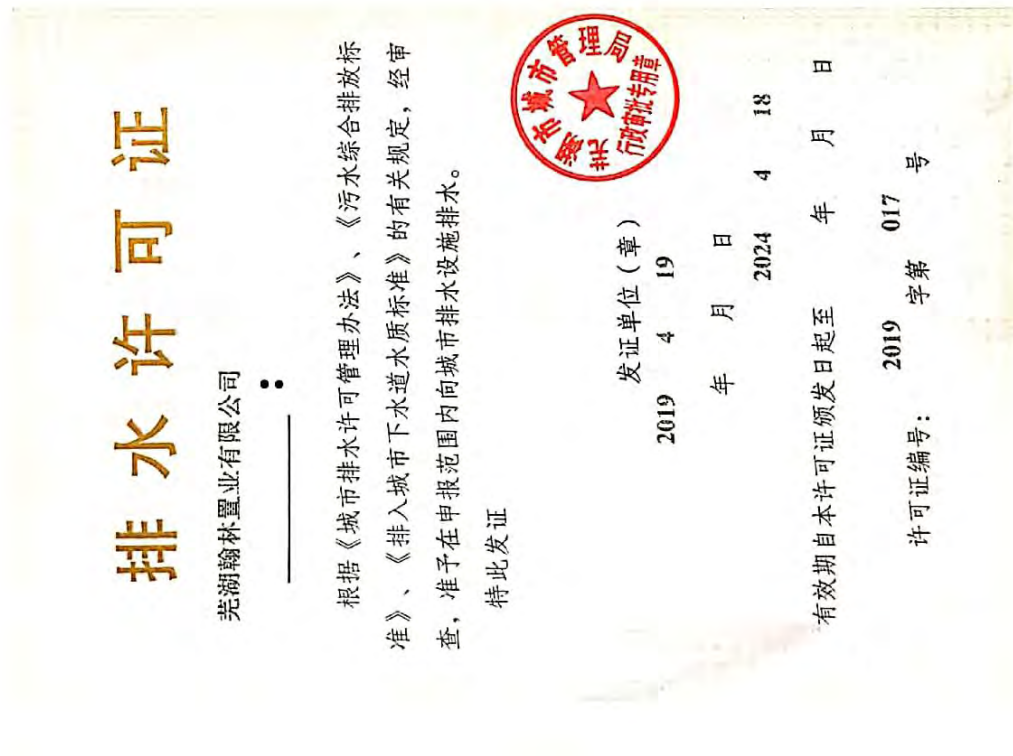 排水许可证
芜湖翰林置业有限公司
：
根据《城市排水许可管理办法》、《污水综合排放标
准》、《排入城市下水道水质标准》的有关规定，经审
查，准予在申报范围内向城市排水设施排水。
特此发证
芜湖市城市管理局
行政审批专用章
发证单位（章）
2019 4 19
年 月 日
2024 4 18
有效期自本许可证颁发日起至 年 月 日
2019 017
许可证编号： 字第 号